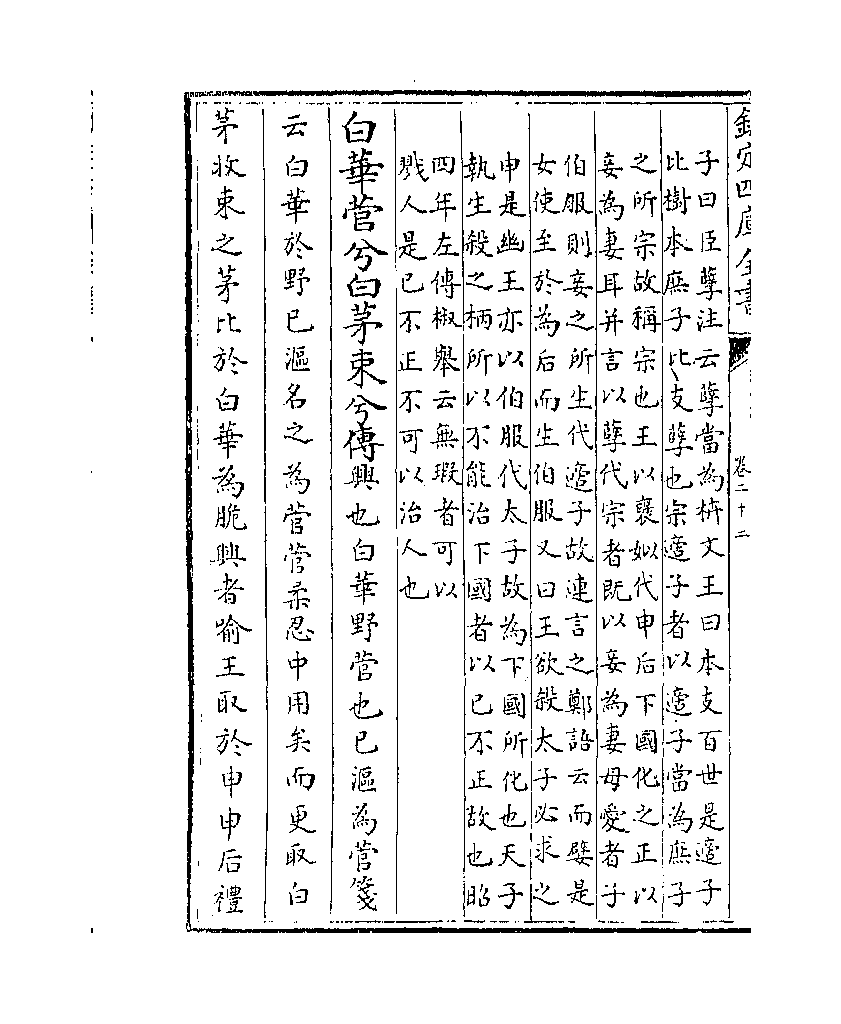 欽定四庫全書
卷二十二
子曰臣孽注云孽當為枿文王曰本支百世是適子
比樹本庶子比支孽也宗適子者以適子當為庶子
之所宗故稱宗也王以襃姒代申后下國化之正以
妾為妻耳并言以孽代宗者既以妾為妻母愛者子
伯服則妾之所生代適子故連言之鄭語云而嬖是
女使至於為后而生伯服又曰王欲殺太子必求之
申是幽王亦以伯服代太子故為下國所化也天子
執生殺之柄所以不能治下國者以已不正故也昭
四年左傳椒舉云無瑕者可以
戮人是已不正不可以治人也
白華菅兮白茅束兮傳興也白華野菅也已漚為菅箋
云白華於野已漚名之為菅菅柔忍中用矣而更取白
茅收束之茅比於白華為脆興者喻王取於申申后禮